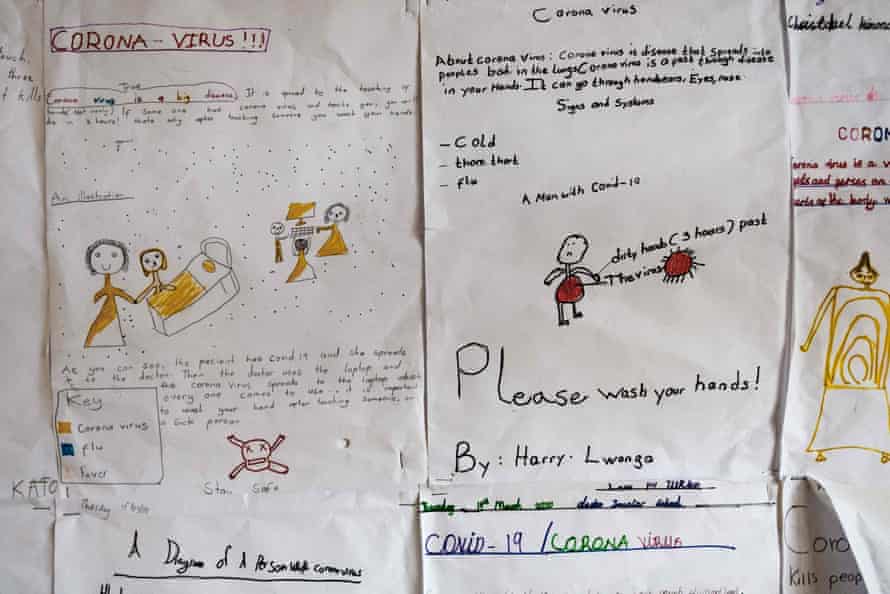 CORONA - VIRUS!!!
True
Corona virus is a big disease. It is spread by the touching of
hands not really! If some one has corona virus and touch you, you will
die in 3 hours! thats why after touching someone you wash your hands.
An illustration
As you can see, the pacient has Covid 19 and she spreads
it to the doctor. Then the doctor uses the laptop and
the corona virus spreads to the laptop which
every one comes to use. it is important
to wash your hand after touching someone, or
a sick person
Key
Corona virus
flu
Fever
Stay Safe
KATO
Thursday
A Diagram of A Person with coronavirus
Corona virus
About corona virus: Corona virus is disease that spreads into
peoples bod in the lungs Corona virus is a past though disease
in your hands. It can go through handbears, Eyes, nose
Signs and Systems
- Cold
- thorn thort
- flu
A Man with Covid-19
dirty hands (3 hours) past
The virus
Please wash your hands!
By: Harry. Lwanga
March
COVID-19 / CORONA VIRUS
three
f kills
Christabel
CORON
orona virus is a v
and person an
arts of the body
Coro
Kills peop